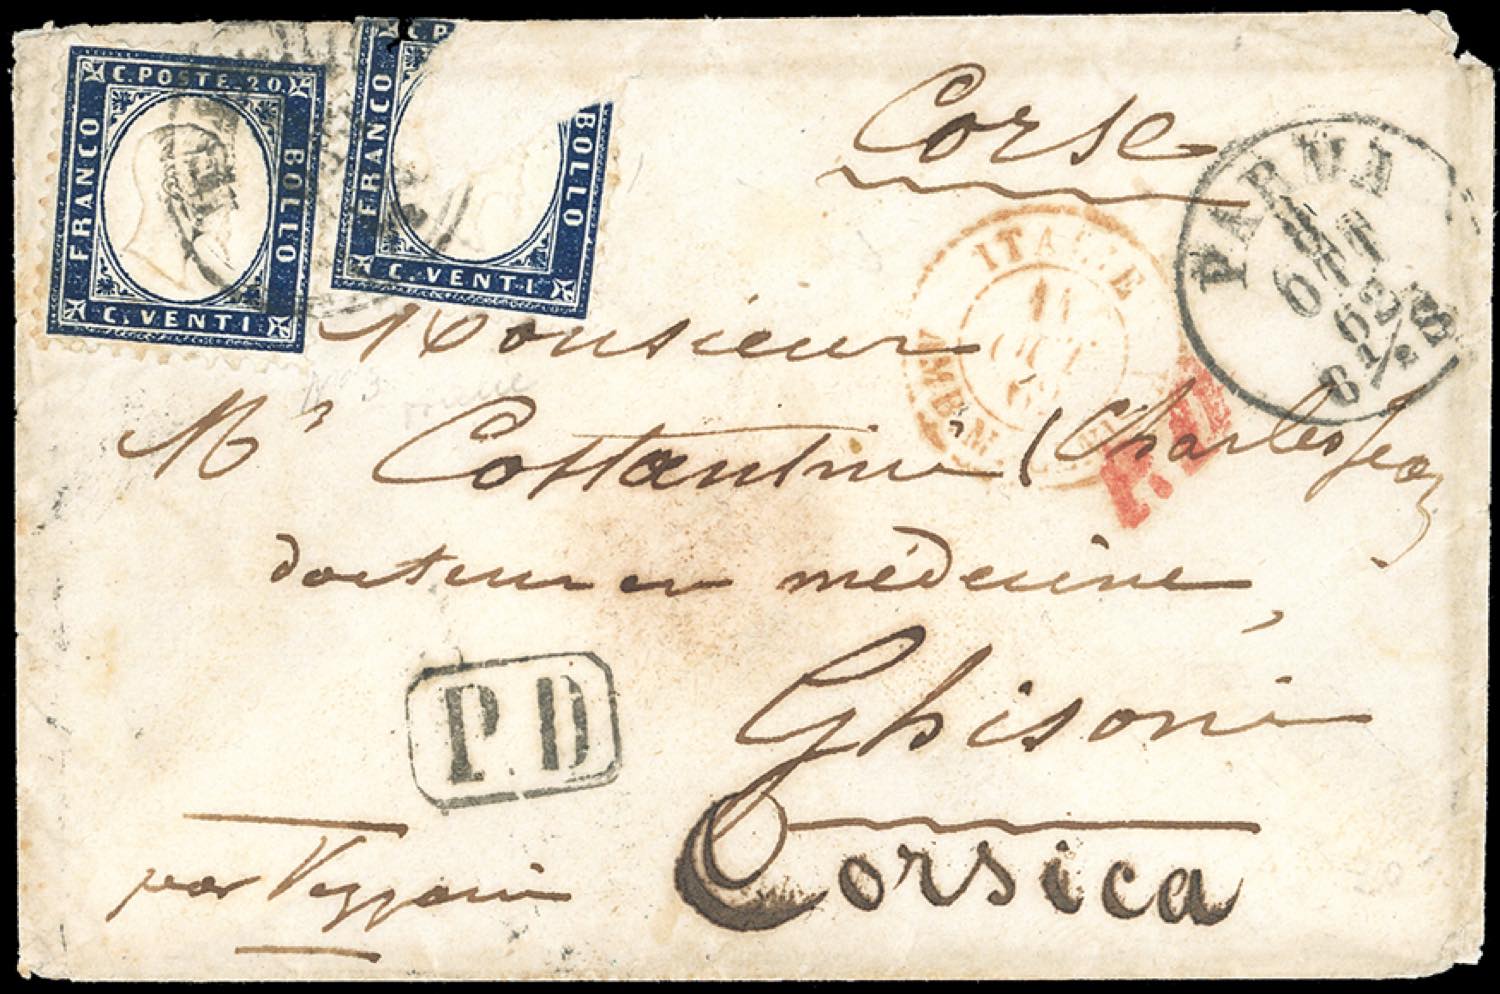 C. POSTE. 20.
FRANCO
BOLLO
C. VENTI
C. P
FRANCO
BOLLO
C. VENTI
Corse
PARMA
8
OTT
62
8 1/2 S
ITALIE
11
OCT
Monsieur
Mr Costantini (Charles Jean)
docteur en médecine
Ghisoni
P.D
Corsica
par Vezzani